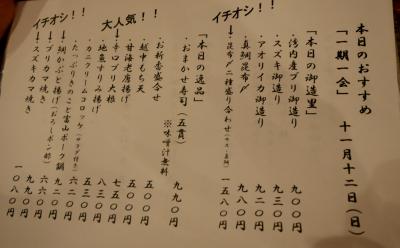 本日のおすすめ
「一期一会」 十一月十二日(日)
「本日の御造里」
・湾内産ブリ御造り 九〇〇円
・スズキ御造り 九三〇円
・アオリイカ御造り 九二〇円
・真鯛昆布〆 九八〇円
イチオシ!!
→昆布〆二種盛り合わせ 一五八〇円
「本日の逸品」
・おまかせ寿司(五貫) 九九〇円
※味噌汁無料
・お新香盛合せ 五〇〇円
・越中もち天 五〇〇円
大人気!!
→辛口ブリ大根 七五〇円
・甘海老唐揚げ
・地魚すりみ揚げ
・カニクリームコロッケ
・たっぷりきのこと富山ポーク鍋
・鯛かぶと揚げ(おろしポン酢)
イチオシ!!
→ブリカマ焼き 九九〇円
→スズキカマ焼き 一〇八〇円